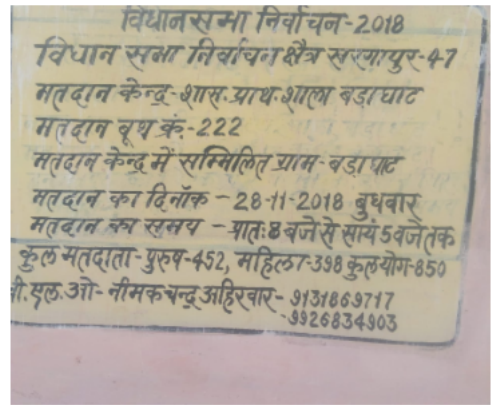 विधानसभा निर्वाचन-2018
विधान सभा निर्वाचन क्षेत्र खरगापुर-47
मतदान केन्द्र-शास. प्राथ. शाला बड़ाघाट
मतदान बूथ क्रं.-222
मतदान केन्द्र में सम्मिलित ग्राम-बड़ाघाट
मतदान का दिनॉक - 28-11-2018 बुधवार
मतदान का समय - प्रातः 8 बजे से सायं 5 बजे तक
कुल मतदाता-पुरुष-452, महिला-398 कुलयोग-850
बी.एल.ओ-नीमकचन्द्र अहिरवार-9131869717
-9926834903